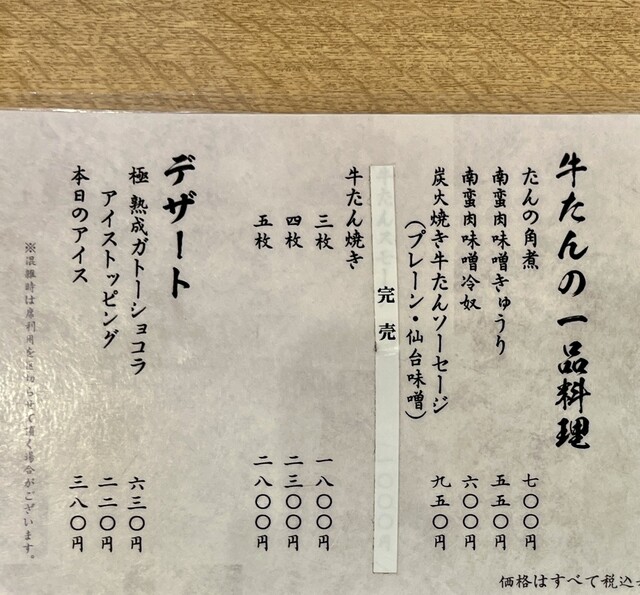 牛たんの一品料理
たんの角煮 七〇〇円
南蛮肉味噌きゅうり 五五〇円
南蛮肉味噌冷奴 六〇〇円
炭火焼き牛たんソーセージ 九五〇円
(プレーン・仙台味噌)
完売
牛たん焼き
三枚 一八〇〇円
四枚 二三〇〇円
五枚 二八〇〇円
デザート
極 熟成ガトーショコラ 六三〇円
アイストッピング 二二〇円
本日のアイス 三八〇円
※混雑時は席利用を区切らせて頂く場合がございます。
価格はすべて税込